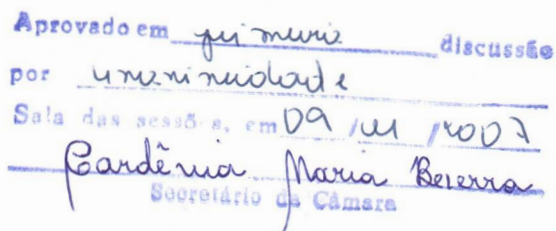 Aprovado em primeira discussão
por unanimidade
Sala das sessões, em 09 / 01 / 2007
Gardênia Maria Bezerra
Secretário da Câmara